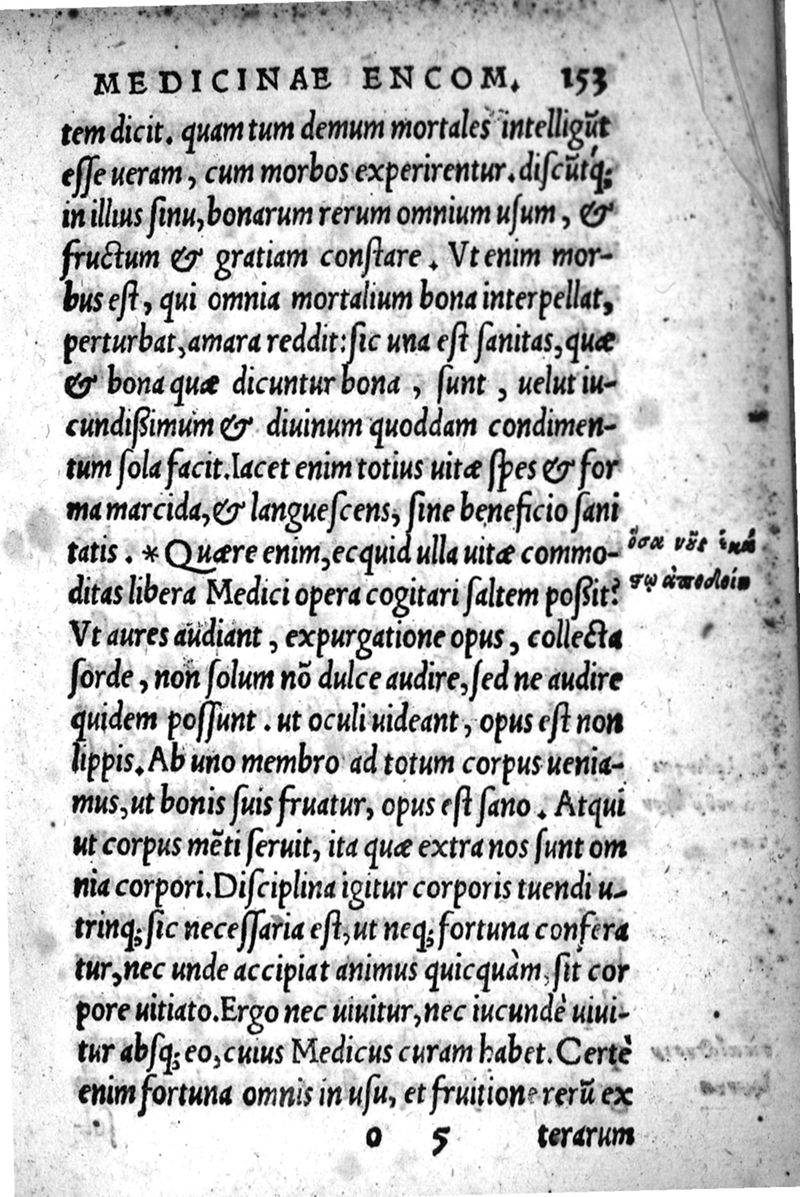 MEDICINAE ENCOM. 153
tem dicit. quam tum demum mortales intelligũt
esse ueram, cum morbos experirentur. discũtq;
in illius sinu, bonarum rerum omnium usum, &
fructum & gratiam constare. Vt enim mor-
bus est, qui omnia mortalium bona interpellat,
perturbat, amara reddit: sic una est sanitas, quæ
& bona quæ dicuntur bona, sunt, uelut iu-
cundißimum & diuinum quoddam condimen-
tum sola facit. Iacet enim totius uitæ spes & for
ma marcida, & languescens, sine beneficio sani
tatis. * Quære enim, ecquid ulla uitæ commo-
ditas libera Medici opera cogitari saltem poßit?
Vt aures audiant, expurgatione opus, collecta
sorde, non solum nõ dulce audire, sed ne audire
quidem possunt. ut oculi uideant, opus est non
lippis. Ab uno membro ad totum corpus uenia-
mus, ut bonis suis fruatur, opus est sano. Atqui
ut corpus mẽti seruit, ita quæ extra nos sunt om
nia corpori. Disciplina igitur corporis tuendi u-
trinq; sic necessaria est, ut neq; fortuna confera
tur, nec unde accipiat animus quicquàm, sit cor
pore uitiato. Ergo nec uiuitur, nec iucundè uiui-
tur absq; eo, cuius Medicus curam habet. Certè
enim fortuna omnis in usu, et fruitione rerũ ex
o 5 terarum